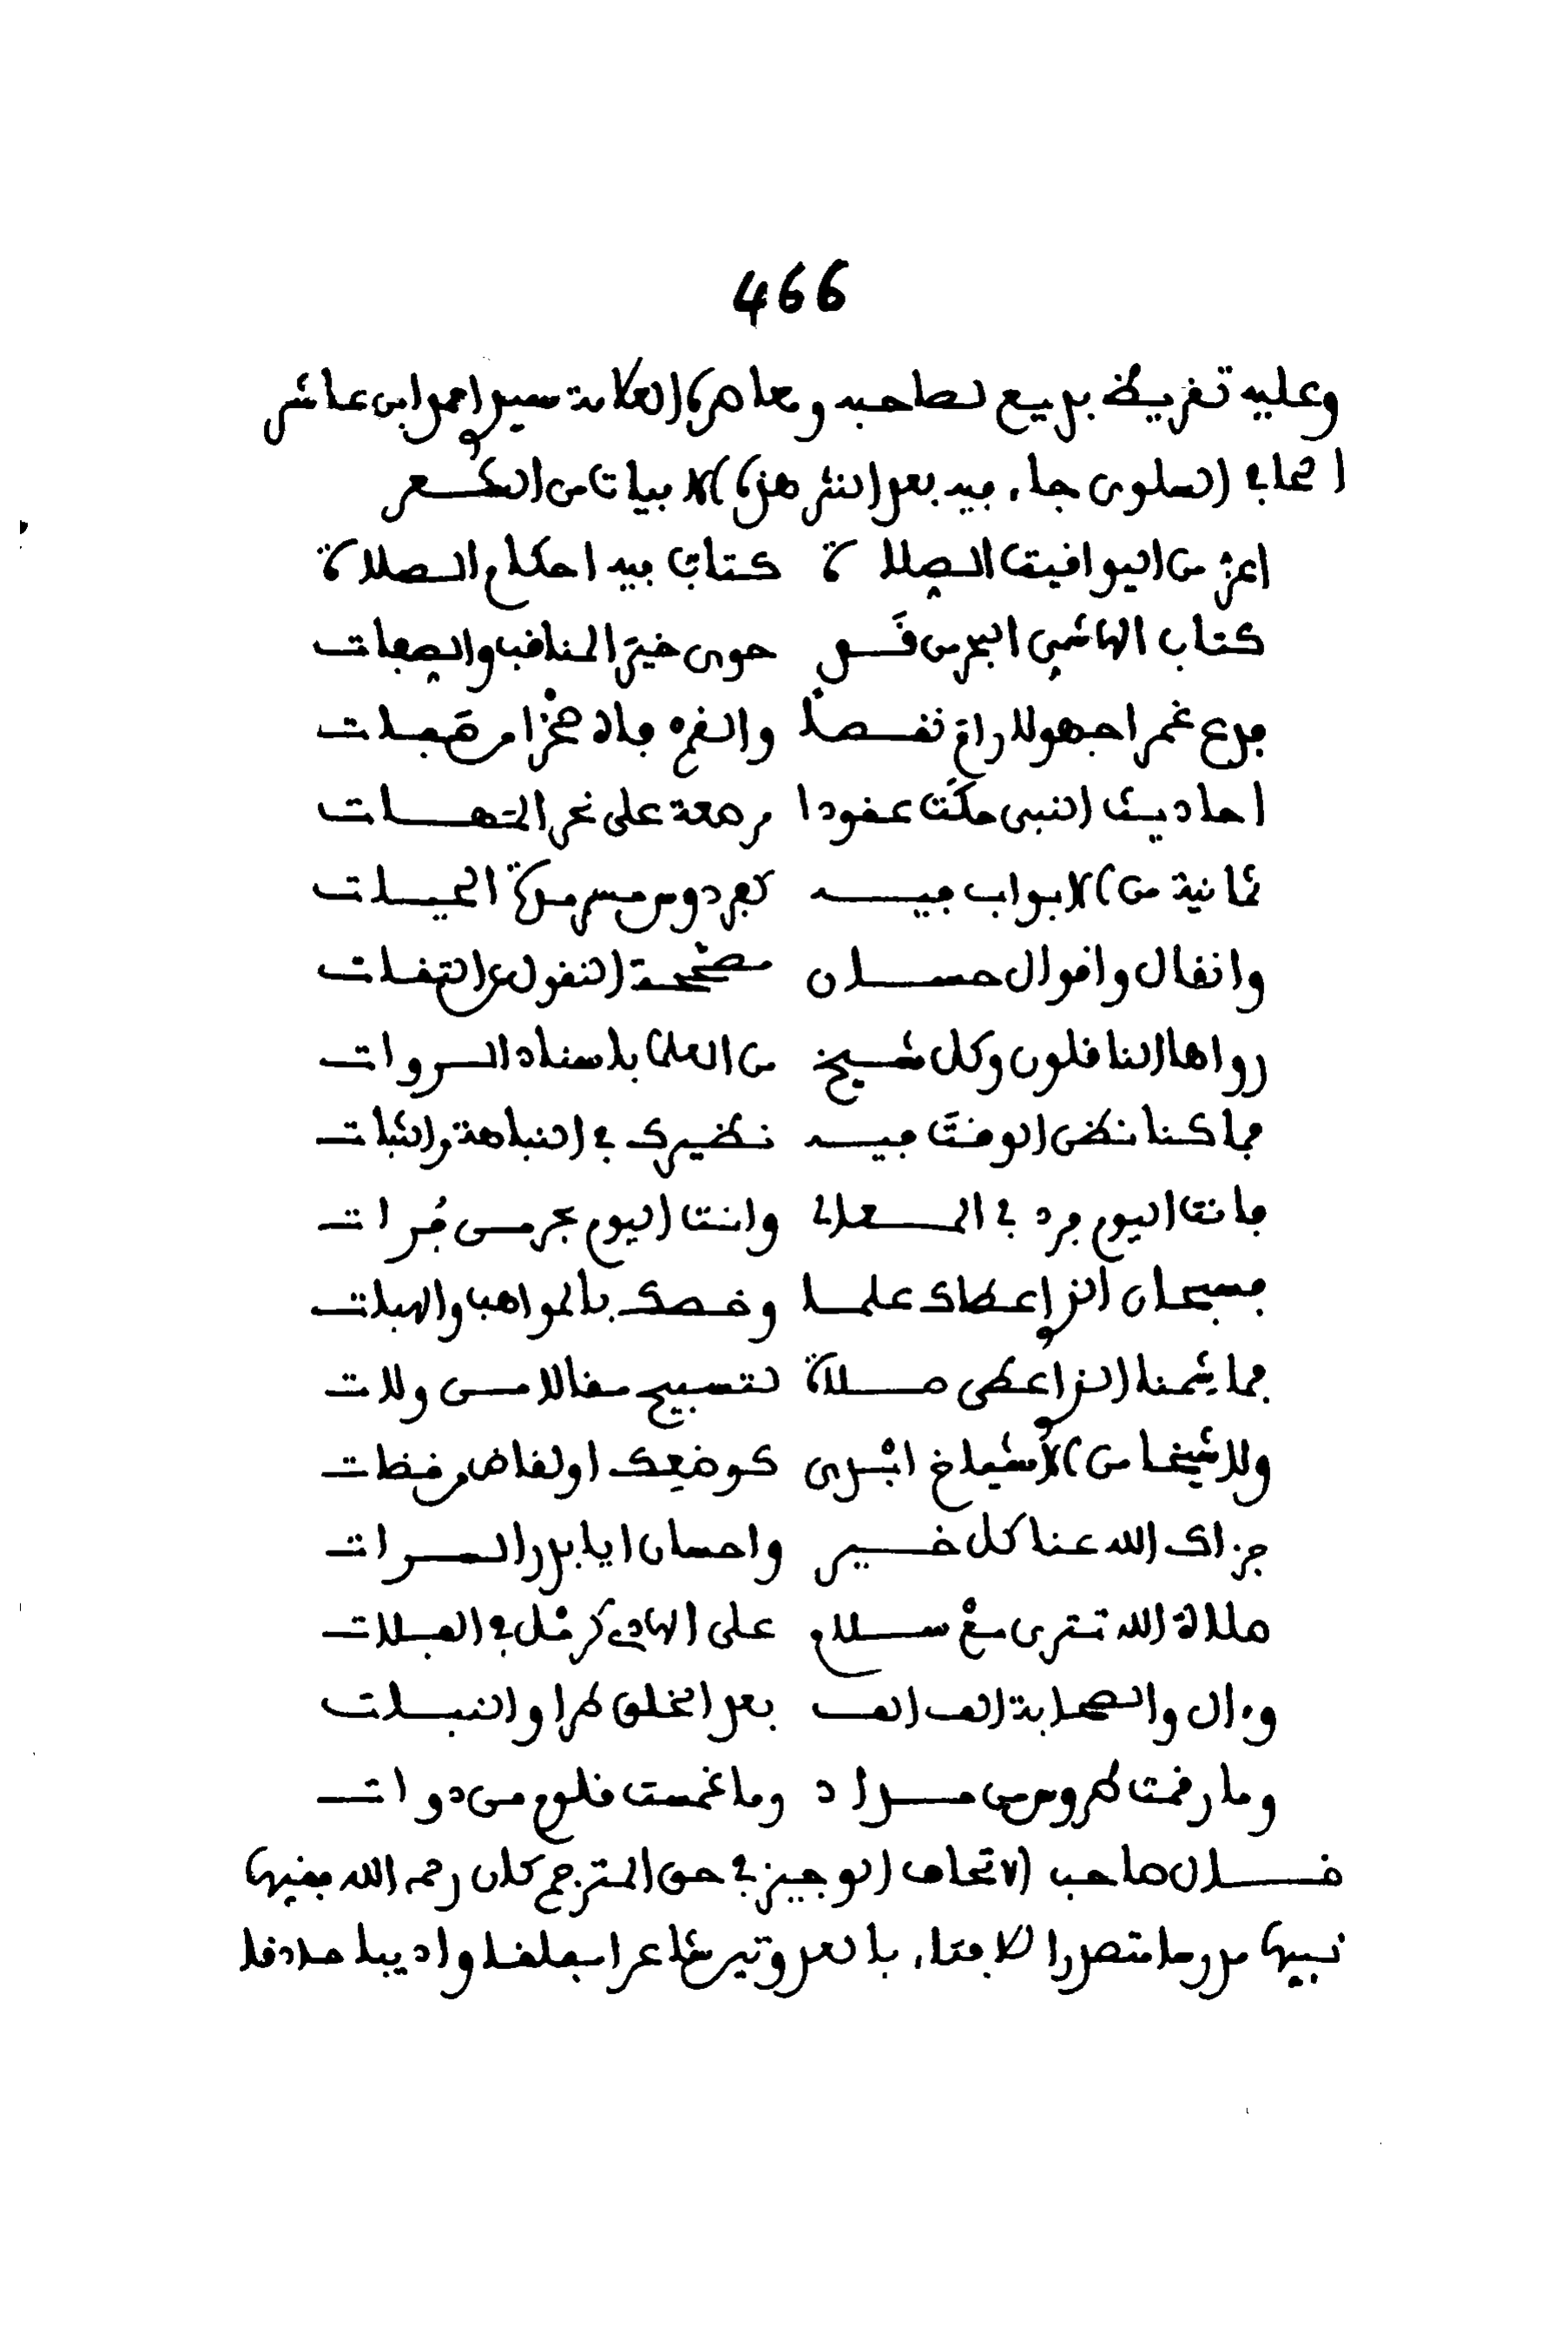 466
وعليه تقريظ بديع لصاحبه ومعاصره العلامة سيدي احمد ابن عاشر
الحافي السلوي جاء فيه بعد النثر هذه الابيات من الشعر
اعز من اليواقيت الصلاة كتاب فيه احكام الصلاة
كتاب الهاشمي البحر من قد حوى خير المناقب والصفات
احاديث النبي حكت عقودا مرصعة على نحر المهات
ثمانية من الابواب فيه كفردوس مسرمدة الحيات
وانقال واقوال حسان مصححة النقول عن الثقات
رواها الناقلون وكل شيخ من العلما باسناد الروات
فما كنا نظن الوقت فيه نظيرك في النباهة والثبات
فانت اليوم فرد في المعالي وانت اليوم بحر من فرات
فسبحان الذي اعطاك علما وخصك بالمواهب والهبات
فما شمنا الذي اعطى صلاة لتسبيح مقالا من ولات
ولا شيخا من الاشياخ ابدى كوضعك اولفاض من قضات
جزاك الله عنا كل خير واحسان ايا بدر السرات
صلاة الله تترى مع سلام على الهادي كرمل في الفلات
وءال والصحابة الف الف بعد الخلق طرا والنبات
وما رقمت طروس من مداد وما غمست قلوم من دوات
قال صاحب الاتحاف الوجيز في حق المترجم كان رحمه الله فقيها
نبيها مدرسا متصدرا للافتاء بالعدوتين شاعرا مفلقا واديبا حاذقا